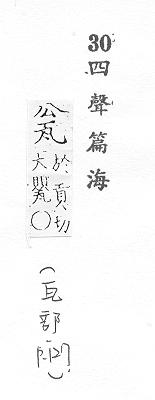 30 四聲篇海
瓮
於貢切
大甖〇
(瓦部 P.127)